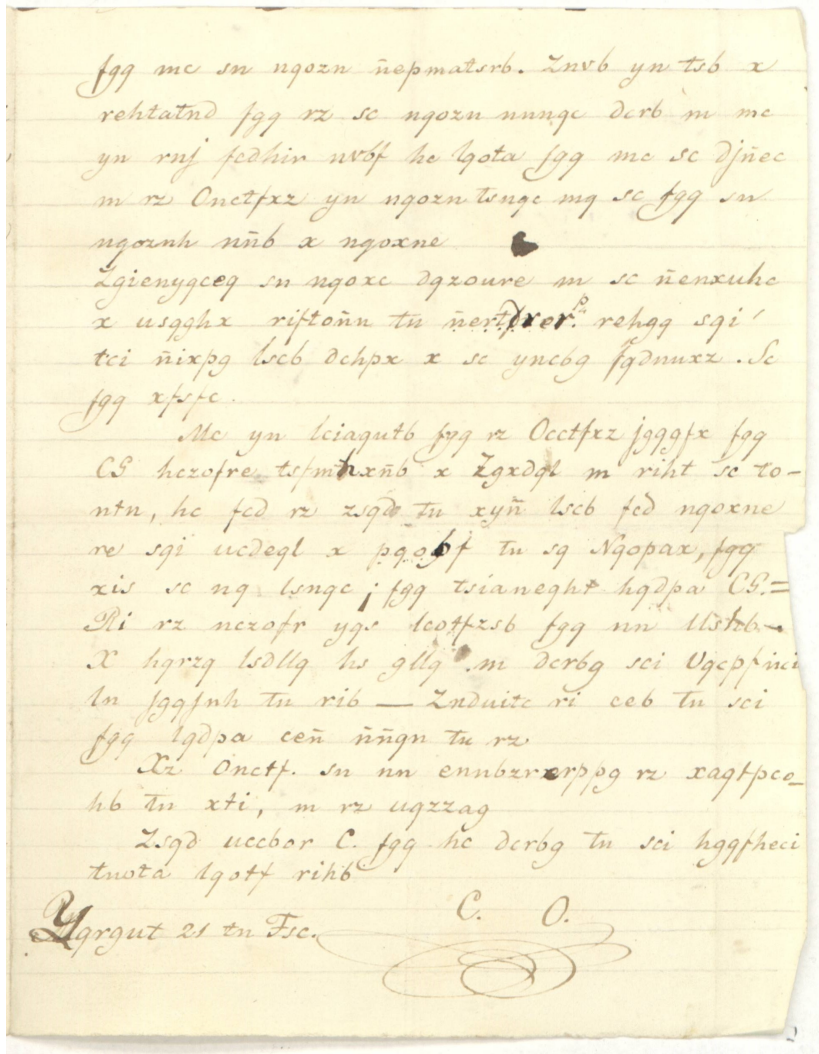 fgq mc sn nqozn ñepmatsrb. Znvb yn tsb x
rehtatnd fgq rz sc nqozn nnnqc dcrb m mc
yn rnj fcdhir nvbf hc lqota fgq mc sc djñec
m rz Onctfxz yn nqozn tsnqc mq sc fgq sn
nqoznh nñb x nqoxne
Zgienyqceq sn nqoxc dqzoure m sc ñenxuhc
x usgghx riftoñn tu rehgq sqi
tci ñixpg lscb dchpx x sc yncbg fqdnuxz. Sc
fgq xfsfc.
Mc yn lciaqutb fgq rz Occtfxz jgqgfx fgq
CS hczofre tsfmthxñb x Zgxdql m riht sc to-
ntn, hc fcd rz zsqd tu xyñ lscb fcd nqoxne
re sqi ucdeql x tu sq Nqopax, fgq
xis sc nq lsnqc; fgq tsianeqht hqdpa CS.=
Ri rz nczofr yqs lcotfzsb fgq nn Ushcb-
X hqrzq lsdllq hs gllq m dcrbg sci Uqcpfñci
ln fgqfnh tu rib — Znduitc ri ceb tu sci
fgq lqdpa ceñ ññqn tu rz
Xz Onctf. sn nn ennbzrxerppg rz xaqtpco-
hb tu xti, m rz uqzzag
Zsqd uccbor C. fgq hc dcrbg tu sci hgqfheci
tuota lqotf rihb
C. O.
Yqrgut 21 tu Fsc.